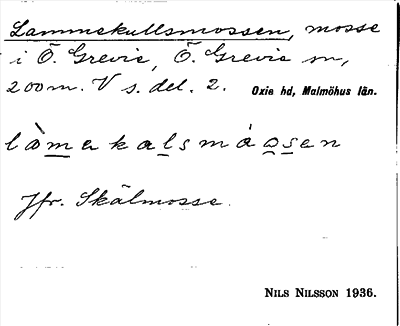 Lammekullsmossen, mosse
i Ö. Grevie, Ö. Grevie sn,
200 m. V s. del. 2. Oxie hd, Malmöhus län.
làmekalsmása̲en
Jfr. Skälmosse.
NILS NILSSON 1936.